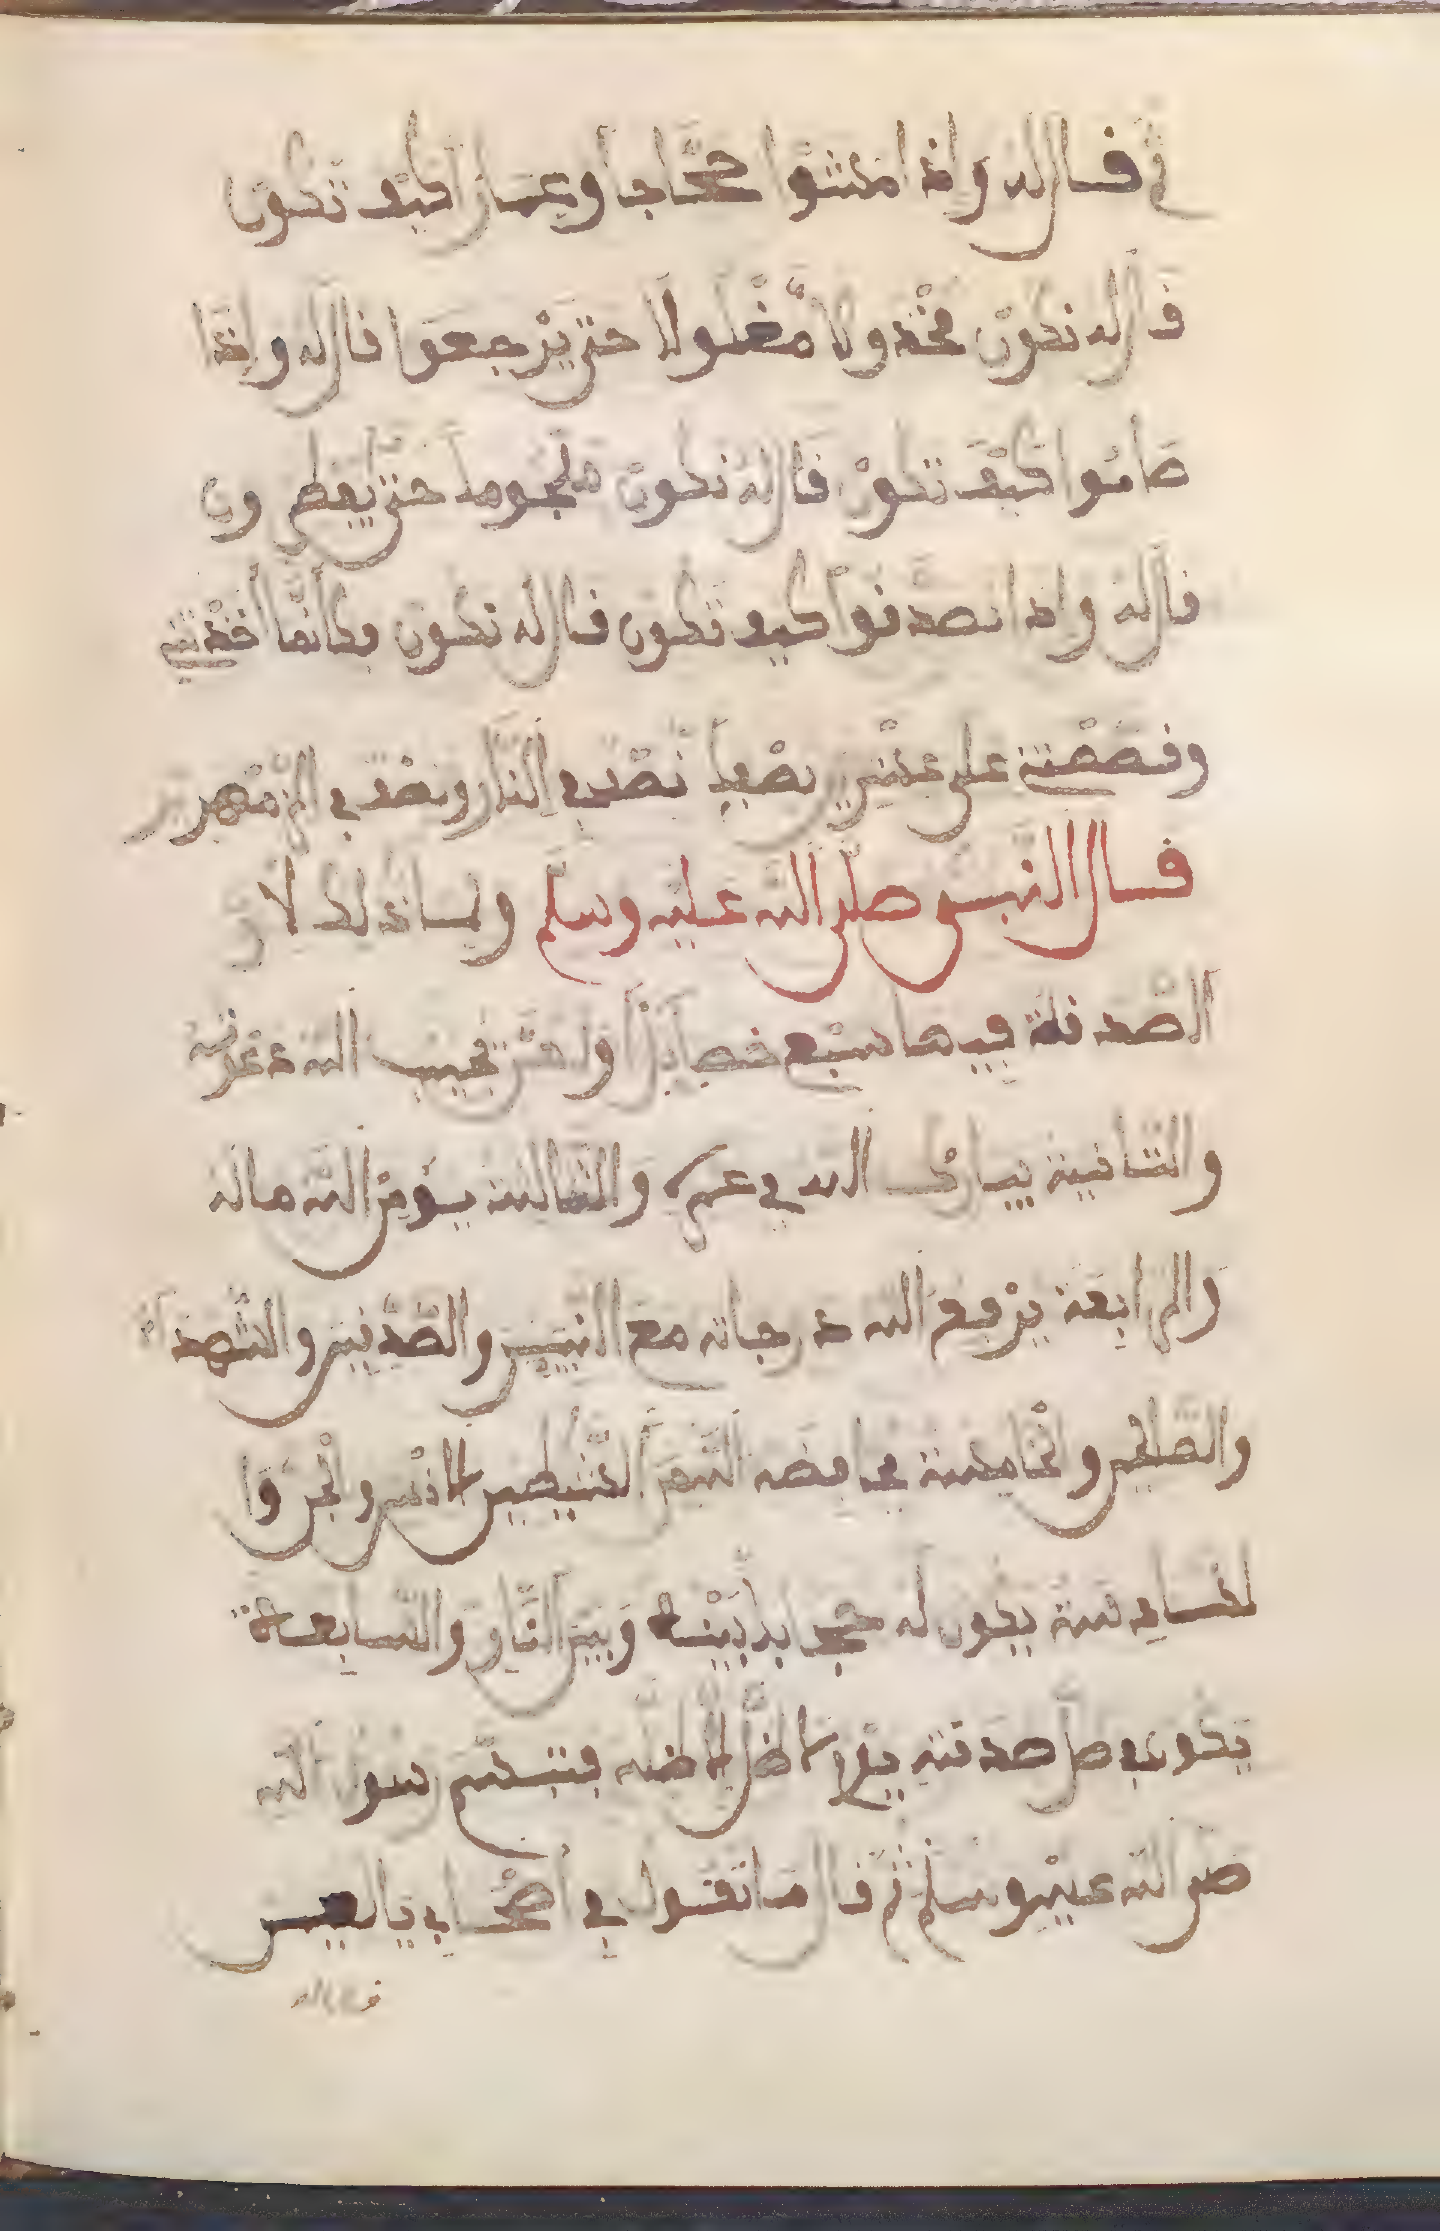 ثم قال له وإذا مشوا حجاجا وعمارا كيف تكون
قال له نكون مخذولا مغلولا حتى يرجعوا قال له وإذا
صاموا كيف تكون قال له نكون ملجوما حتى يفطرون
قال له وإذا تصدقوا كيف تكون قال له نكون فكأنما أخذتني
وقصصتني على نصفين نصفا في النار ونصفا في الزمهرير
قال النبي صلى الله عليه وسلم ولماذا ذلك لأن
الصدقة فيها سبع خصال أولا حتى يجيب الله دعوته
والثانية يبارك الله في عمره والثالثة يؤمن الله ماله
والرابعة يرفع الله درجاته مع النبيين والصديقين والشهداء
والصالحين والخامسة يحافظه الله من الشيطين الانس والجن وا
لسادسة يكون له حجابا بينه وبين النار والسابعة
يكون في ظل صدقته يوم لا ظل إلا ظله فتبسم رسول الله
صلى الله عليه وسلم ثم قال ما تقول في أصحابي يا لعين